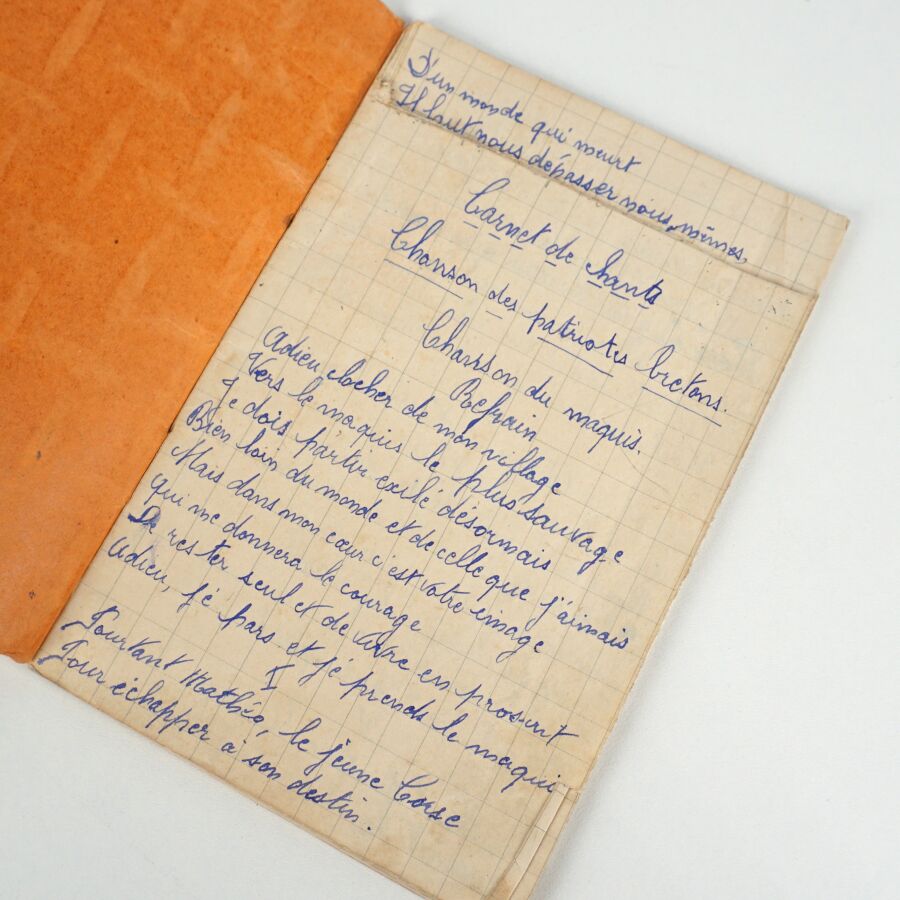 D'un monde qui meurt
Il faut nous dépasser nous, mêmes,
Carnet de chants
Chanson des patriotes bretons.
Chanson du maquis.
Refrain
Adieu clocher de mon village
Vers le maquis le plus sauvage
Je dois partir exilé désormais
Bien loin du monde et de celle que j'aimais
Mais dans mon cœur c'est votre image
Qui me donnera le courage
De rester seul et de vivre en proscrit
Adieu, je pars et je prends le maqui
I
Pourtant Mathéo, le jeune Corse
Pour échapper à son destin.